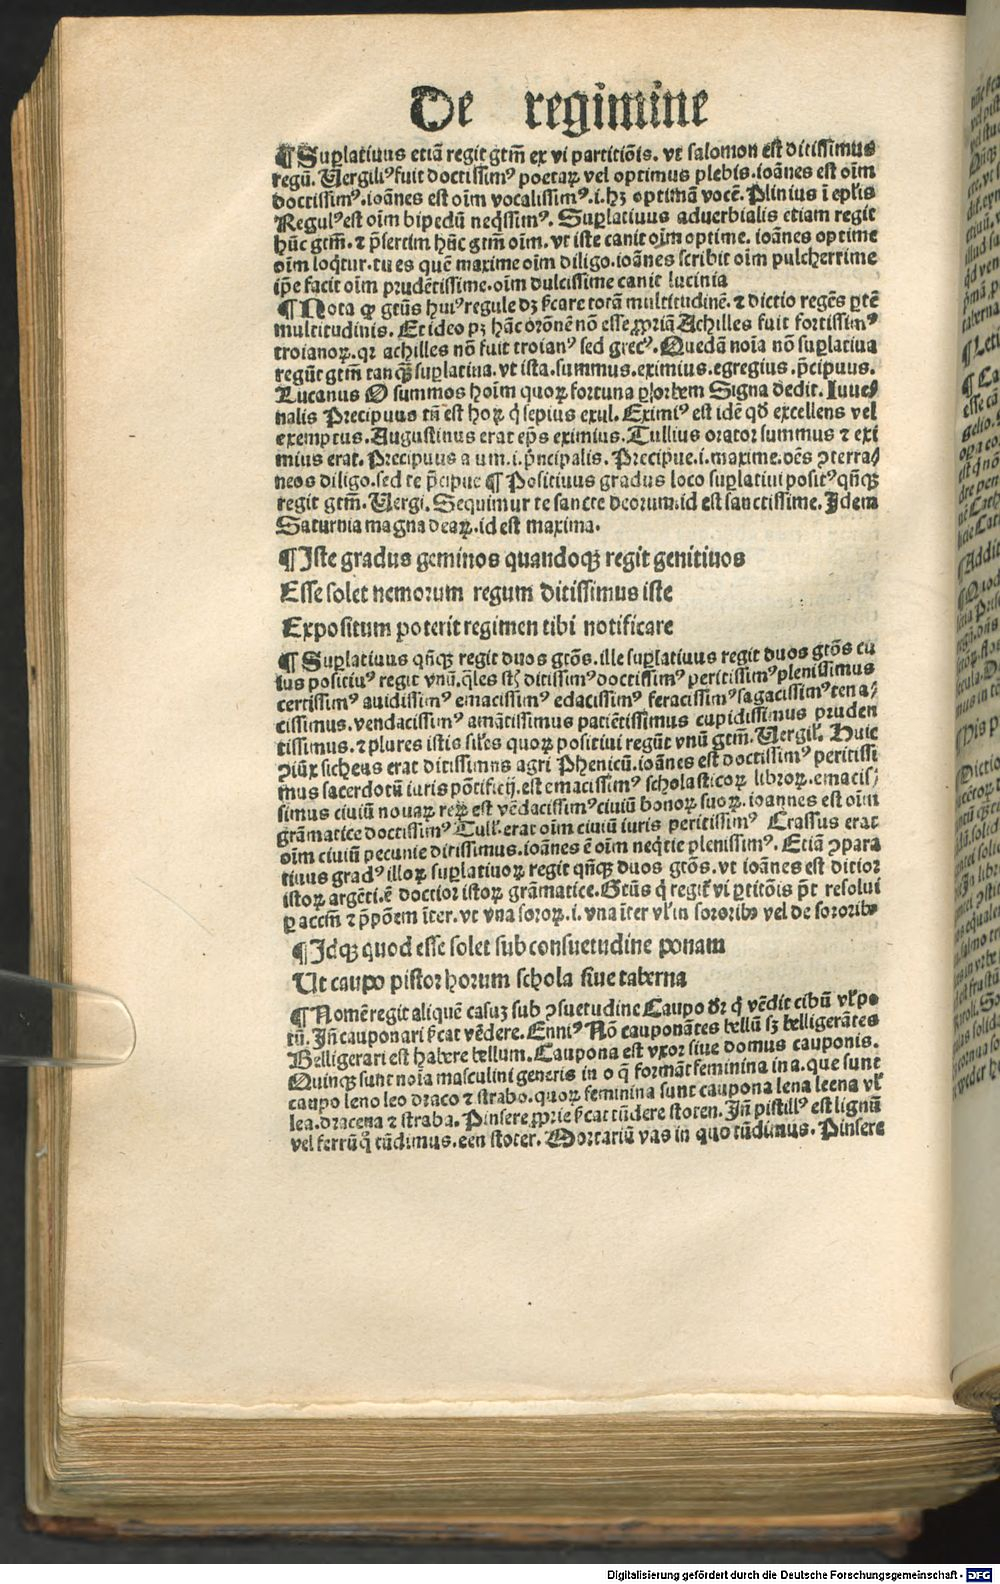 De regimine
¶ Suꝑlatiuus etiã regit gtm̄ ex vi partitiōis. vt salomon est ditissimus
regũ. Uergiliꝰ fuit doctissimꝰ poetaꝝ vel optimus plebis. ioānes est oīm
doctissimꝰ. ioānes est oīm vocalissimꝰ. i. hꝫ optimam vocē. Plinius ī epl̄is
Regulꝰ est oīm bipedũ neq̄ssimꝰ. Suꝑlatiuus aduerbialis etiam regit
hūc gtm̄. ⁊ p̄sertim hūc gtm̄ oīm. vt iste canit oīm optime. ioānes optime
oīm loq̄tur. tu es quē maxime oīm diligo. ioānes scribit oīm pulcherrime
ip̄e facit oīm prudētissime. oīm dulcissime canit lucinia
¶ Nota ꝙ gtũs huiꝰ regule dꝫ ſicare totã multitudinē. ⁊ dictio regēs ꝑtē
multitudinis. Et ideo pꝫ hāc orōnē nō esse ꝓpriã Achilles fuit fortissimꝰ
troianoꝝ. qꝛ achilles nō fuit troianꝰ sed grecꝰ. Quedā noīa nō suꝑlatiua
regũt gtm̄ tanqꝫ suꝑlatiua. vt ista. summus. eximius. egregius. p̄cipuus.
Lucanus O summos hoīm quoꝝ fortuna ꝑ orbem Signa dedit. Iuue⸗
nalis Precipuus tñ est hoꝝ q̇ sepius exul. Eximiꝰ est idē qđ excellens vel
exemptus. Augustinus erat ep̄s eximius. Tullius orator summus ⁊ exi
mius erat. Precipuus a um. i. p̄ncipalis. Precipue. i. maxime. oēs ꝯterra⸗
neos diligo. sed te p̄cipue ¶ Positiuus gradus loco suꝑlatiui positꝰ qñqꝫ
regit gtm̄. Uergi. Sequimur te sancte deorum. id est sanctissime. Idem
Saturnia magna deaꝝ. id est maxima.
¶ Iste gradus geminos quandoqꝫ regit genitiuos
Esse solet nemorum regum ditissimus iste
Expositum poterit regimen tibi notificare
¶ Suꝑlatiuus qñqꝫ regit duos gtōs. ille suꝑlatiuus regit duos gtōs cu
ius positiuꝰ regit vnũ. q̄les st̄ ditissimꝰ doctissimꝰ peritissimꝰ plenissimus
certissimꝰ auidissimꝰ emacissimꝰ edacissimꝰ feracissimꝰ sagacissimꝰ tena⸗
cissimus. vendacissimꝰ amātissimus patiētissimus cupidissimus pruden
tissimus. ⁊ plures istis sil̄es quoꝝ positiui regũt vnũ gtm̄. Uergil̄. Huic
ꝯiũx sicheus erat ditissimus agri Phenicũ. ioānes est doctissimꝰ peritissi
mus sacerdotũ iuris pōtificij. est emacissimꝰ scholasticoꝝ libroꝝ. emacis⸗
simus ciuiũ nouaꝝ reꝝ est vēdacissimꝰ ciuiũ bonoꝝ suoꝝ. ioannes est oīm
grāmatice doctissimꝰ Tull̄. erat oīm ciuiũ iuris peritissimꝰ Crassus erat
oīm ciuiũ pecunie ditissimus. ioānes ē oīm neq̄tie plenissimꝰ. Etiã ꝯpara
tiuus gradꝰ illoꝝ suꝑlatiuoꝝ regit qñqꝫ duos gtōs. vt ioānes est ditior
istoꝝ argēti. ē doctior istoꝝ grāmatice. Gtũs q̇ regiť vi ꝑtitōis p̄t resolui
ꝑ accm̄ ⁊ p̄pōem īter. vt vna soroꝝ. i. vna īter vl̄ in sororibꝰ vel de sororibꝰ
¶ Idqꝫ quod esse solet sub consuetudine ponam
Ut caupo pistor horum schola siue taberna
¶ Nomē regit aliquē casuꝫ sub ꝯsuetudine Caupo dr̄ q̇ vēdit cibũ vl̄ po
tũ. Iñ cauponari ſicat vēdere. Enniꝰ Nō cauponātes bellũ sꝫ belligerātes
Belligerari est habere bellum. Caupona est vxor siue domus cauponis.
Quinqꝫ sunt noīa masculini generis in o q̄ formāt feminina in a. que sunt
caupo leno leo draco ⁊ strabo. quoꝝ feminina sunt caupona lena leena vl̄
lea. dracena ⁊ straba. Pinsere ꝓprie ſicat tũdere stoten. Iñ pistillꝰ est lignũ
vel ferrũ q̊ tũdimus. een stoter. Mortariũ vas in quo tũdimus. Pinsere
Digitalisierung gefördert durch die Deutsche Forschungsgemeinschaft - DFG